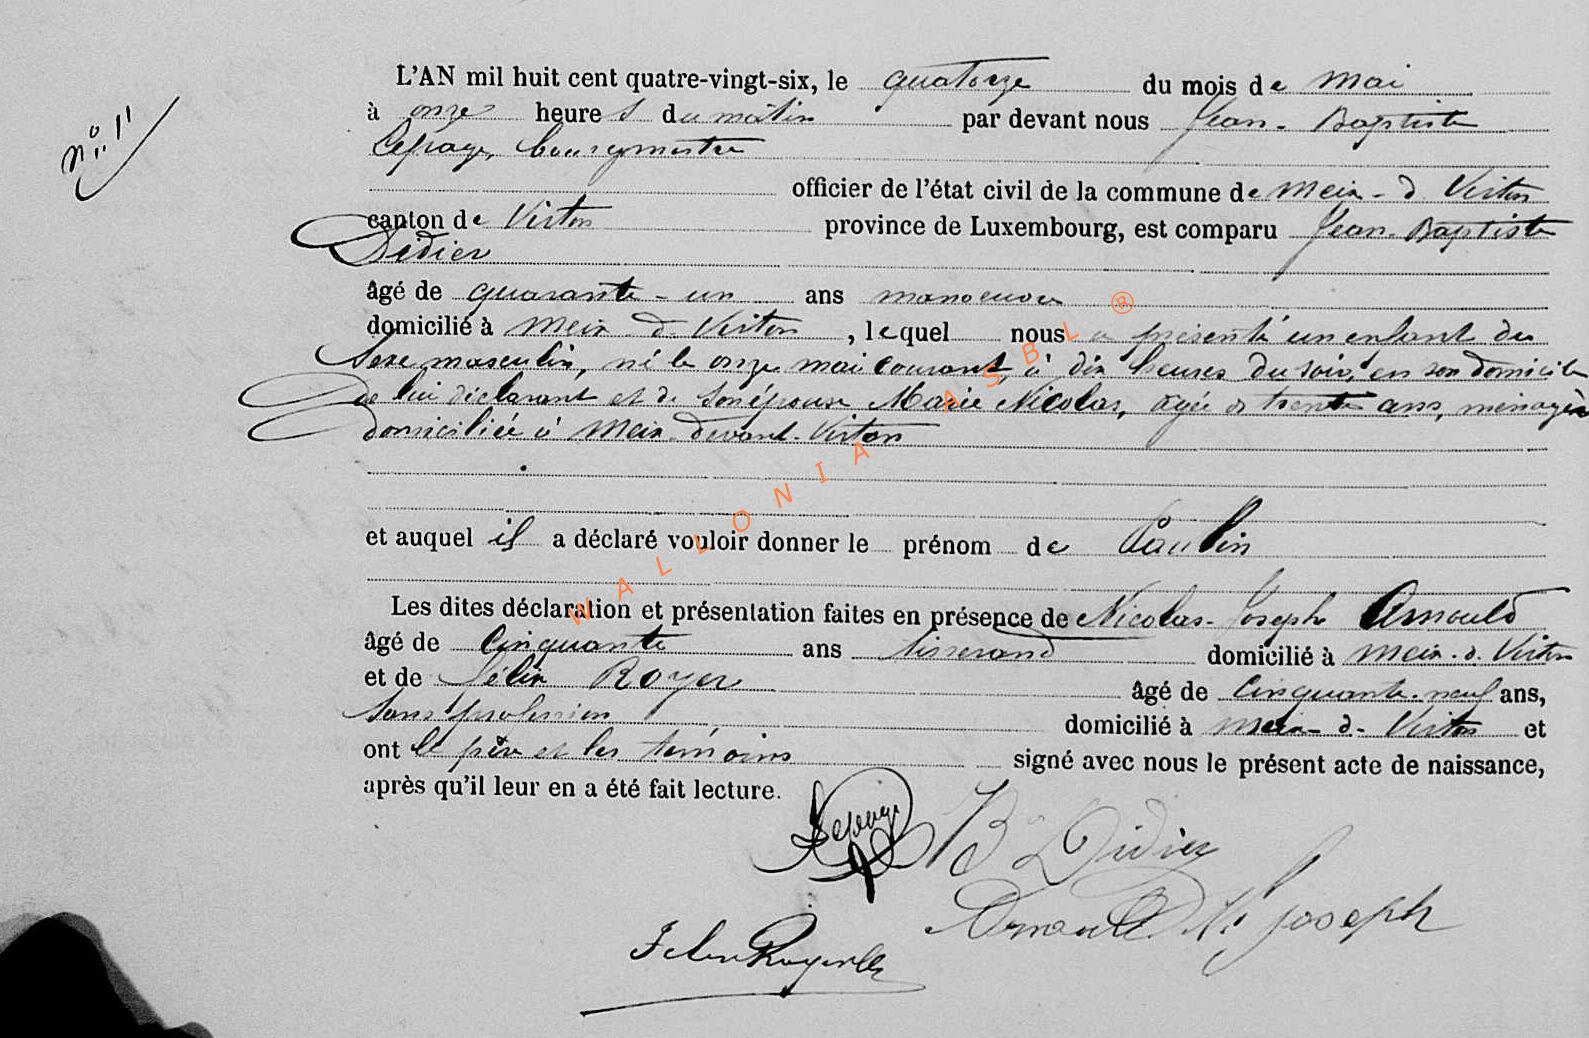 n° 11
L'AN mil huit cent quatre-vingt-six, le quatorze du mois de mai
à onze heures du matin par devant nous Jean-Baptiste
Lepage, bourgmestre
officier de l'état civil de la commune de Meix-d-Virton
canton de Virton province de Luxembourg, est comparu Jean-Baptiste
Didier
âgé de quarante-un ans manoeuvre
domicilié à Meix-d-Virton, lequel nous a présenté un enfant du
sexe masculin, né le onze mai courant, à dix heures du soir, en son domicile
de lui déclarant et de son épouse Marie Nicolas, agée de trente ans, ménagère
domiciliée à Meix-devant-Virton
et auquel il a déclaré vouloir donner le prénom de Paulin
Les dites déclaration et présentation faites en présence de Nicolas-Joseph Arnould
âgé de cinquante ans tisserand domicilié à Meix-d-Virton
et de Félix Royer âgé de cinquante-neuf ans,
sans profession domicilié à Meix-d-Virton et
ont le père et les témoins signé avec nous le présent acte de naissance,
après qu'il leur en a été fait lecture.
Lepage
JB Didier
Arnould N. Joseph
Felix Royer
WALLONIA ASBL ®